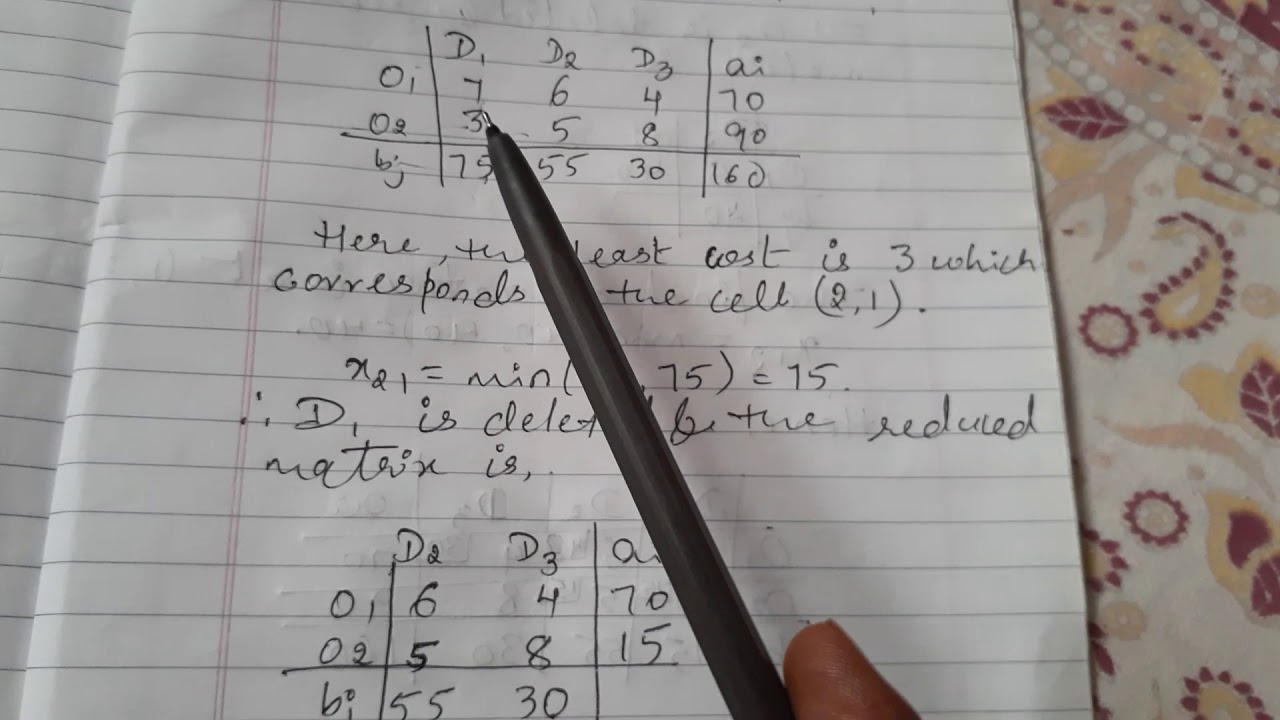 D1 D2 D3 ai
O1 7 6 4 70
O2 3 5 8 90
bj 75 55 30 160
Here, the least cost is 3 which
corresponds the cell (2,1).
x21 = min( ,75) = 75.
∴ D1 is delet & the reduced
matrix is,
D2 D3 ai
O1 6 4 70
O2 5 8 15
bj 55 30